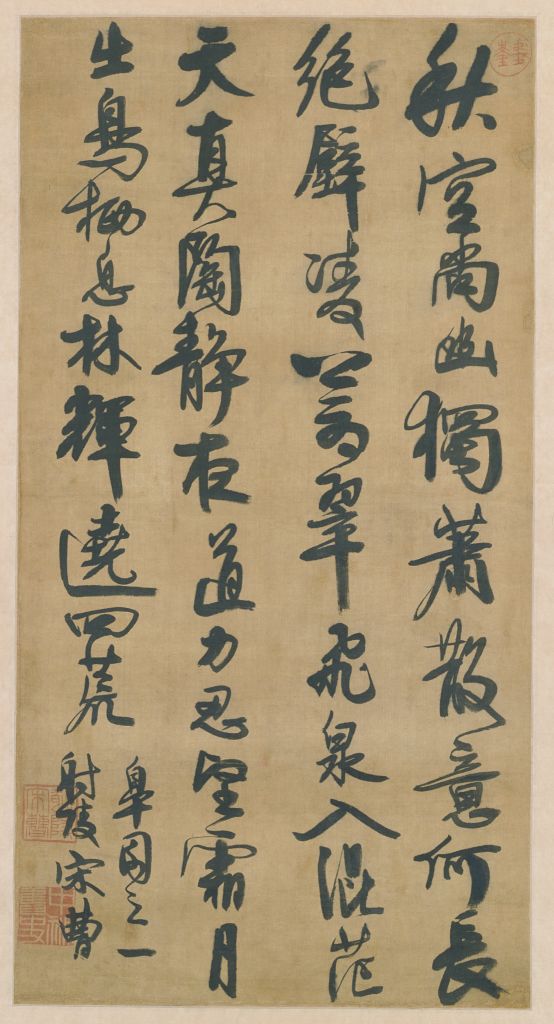 秋空尚幽獨蕭散意何長
絕壁凌翠飛泉入混茫
天真陶靜夜道力忍霜月
出鳥栖息林輝遶四荒
皐園之一
射陵宋曹